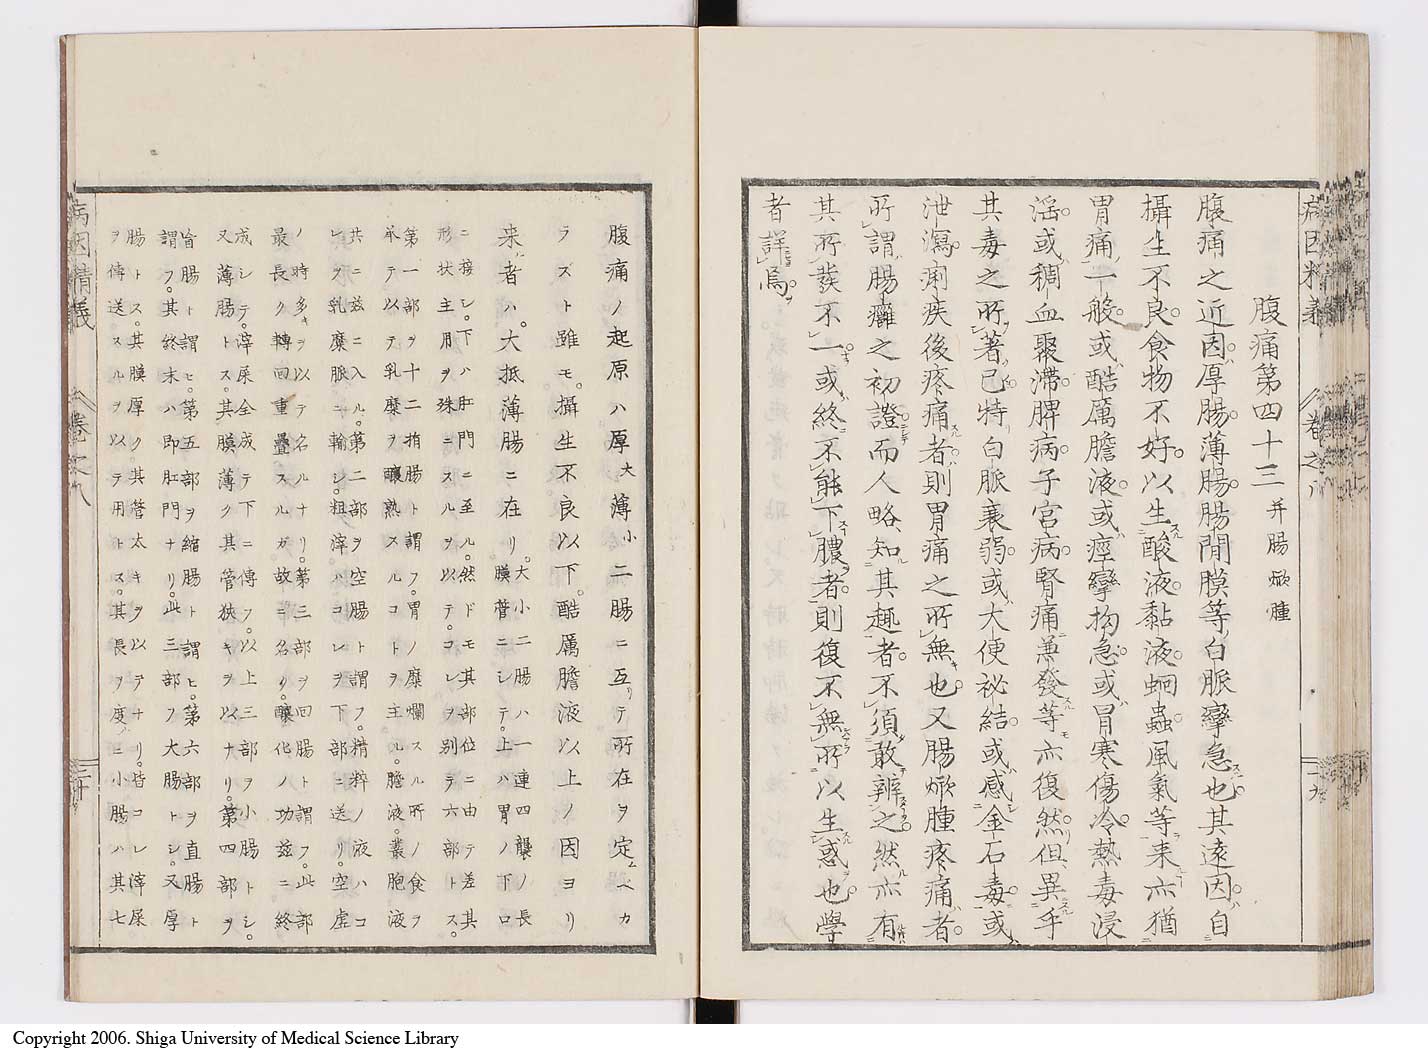 病因精義
卷之八
十九
腹痛第四十三 并腸焮腫
腹痛之近因厚腸薄腸腸間膜等白脈攣急也其遠因自
攝生不良食物不好以生酸液黏液蛔蟲風氣等来亦猶
胃痛一般或酷厲膽液或痙攣拘急或冒寒傷冷熱毒浸
淫或稠血聚滯脾病子宮病腎痛兼發等亦復然但異乎
其毒之所著已特白脈衰弱或大便祕結或感金石毒或
泄瀉痢疾後疼痛者則胃痛之所無也又腸焮腫疼痛者
所謂腸癰之初證而人略知其趣者不須敢辨之然亦有
其所發不一或終不能下膿者則復不無所以生惑也學
者詳焉
腹痛ノ起原ハ厚大薄小二腸ニ互リテ所在ヲ定ムベカ
ラズト雖モ。攝生不良以下。酷厲膽液以上ノ因ヨリ
来者ハ。大抵薄腸ニ在リ。大小二腸ハ一連四襲ノ長
膜管ニシテ。上ハ胃ノ下口
ニ接シ。下ハ肛門ニ至ル。然ドモ其部位ニ由テ差其
形状主用ヲ殊ニスルヲ以テ。コレヲ別テ六部トス。
第一部ヲ十二指腸ト謂フ。胃ノ糜爛スル所ノ食ヲ
承テ以テ乳糜ヲ釀熟スルコトヲ主ル。膽液。叢胞液
共ニ玆ニ入ル。第二部ヲ空腸ト謂フ。精粹ノ液ハコ
レヲ乳糜脈ニ輸シ。粗滓ハコレヲ下部ニ送リ。空虚
ノ時多キヲ以テ名ルナリ。第三部ヲ回腸ト謂フ。此部
最長ク轉回重疊スルガ故ニ名リ。釀化ノ功玆ニ終
成シテ。滓屎全成テ下ニ傳フ。以上三部ヲ小腸トシ。
又薄腸トス。其膜薄ク其管狹キヲ以ナリ。第四部ヲ
盲腸ト謂ヒ。第五部ヲ縮腸ト謂ヒ。第六部ヲ直腸ト
謂フ。其終末ハ即肛門ナリ。此三部ヲ大腸トシ。又厚
腸トス。其膜厚ク其管太キヲ以テナリ。皆コレ滓屎
ヲ傳送スルヲ以テ用トス。其長ヲ度ルニ小腸ハ其七
病因精義
卷之八
二十
Copyright 2006. Shiga University of Medical Science Library